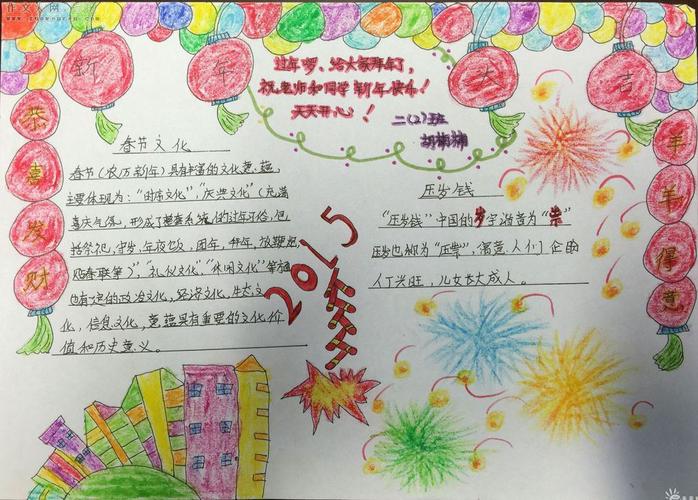 新年大吉
过年啰、给大家拜年了,
祝老师和同学新年快乐!
天天开心!
二(2)班
恭喜发财
羊羊得意
春节文化
春节(农历新年)具有丰富的文化意蕴,
主要体现为:"时布文化","庆典文化"(充满
喜庆气氛,形成了整套系统的过年习俗,包
括祭祀,守岁,年夜饭,团年,拜年,放鞭炮
贴春联等),"礼仪文化","休闲文化"等福
也有定的政治文化,经济文化,生态文
化,信息文化,意蕴具有重要的文化价
值和历史意义。
2015
压岁钱
"压岁钱"中国的岁字谐音为"祟"
压岁也称为"压祟",寓意人们企盼
人丁兴旺,儿女长大成人。